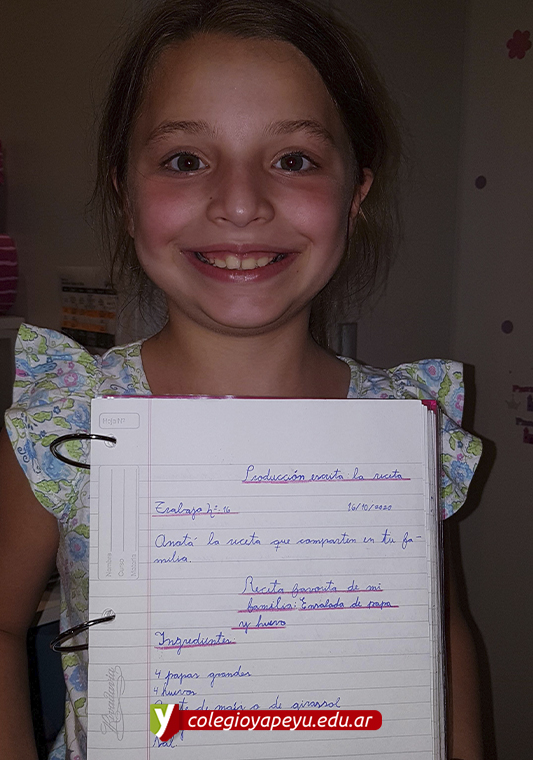 HOJA Nº
Producción escrita la receta
Trabajo nº 16
16/10/2020
Anotá la receta que comparten en tu fa-
milia.
Receta favorita de mi
familia: Ensalada de papa
y huevo
Ingredientes
4 papas grandes
4 huevos
de maíz o de girasol
Sal
Nombre
Curso
Materia
Rivadavia
y colegioyapeyu.edu.ar